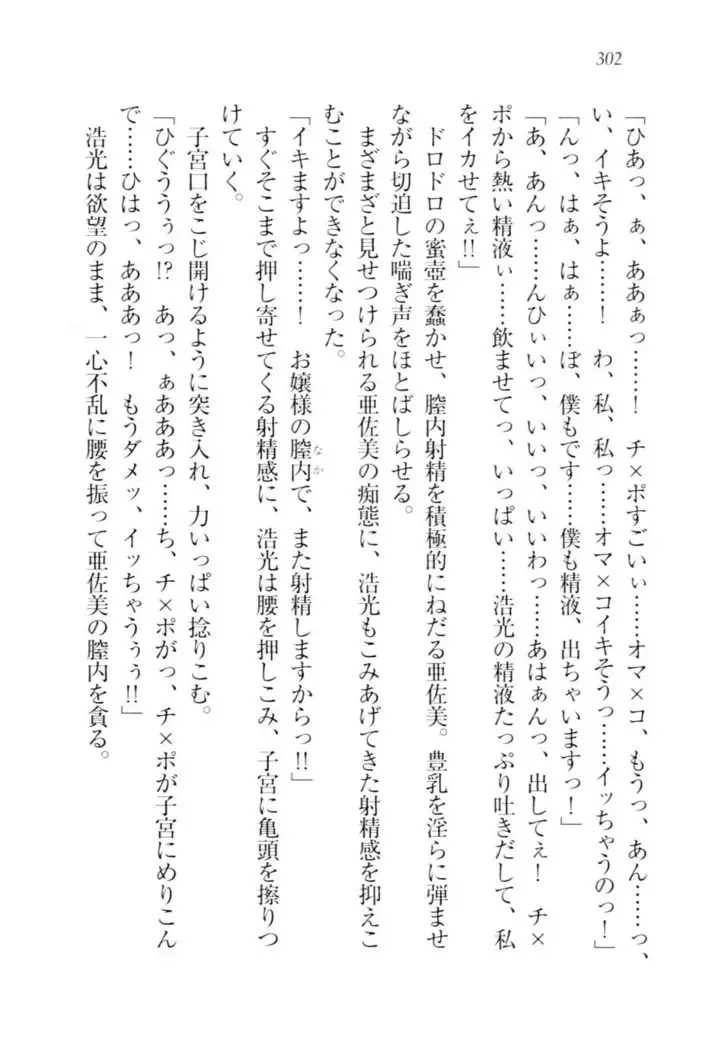 302
「ひあっ、ぁ、ああぁっ……！　チ×ポすごいぃ……オマ×コ、もうっ、あん……っ、
い、イキそうよ……！　わ、私、私っ……オマ×コイキそうっ……イッちゃうのっ！」
「んっ、はぁ、はぁ……ぼ、僕もです……僕も精液、出ちゃいますっ！」
「あ、あんっ……んひぃいっ、いいっ、いいわっ……あはぁんっ、出してぇ！　チ×
ポから熱い精液ぃ……飲ませてっ、いっぱい……浩光の精液たっぷり吐きだして、私
をイカせてぇ!!」
ドロドロの蜜壺を蠢かせ、膣内射精を積極的にねだる亜佐美。豊乳を淫らに弾ませ
ながら切迫した喘ぎ声をほとばしらせる。
まざまざと見せつけられる亜佐美の痴態に、浩光もこみあげてきた射精感を抑えこ
むことができなくなった。
「イキますよっ……！　お嬢様の膣内（なか）で、また射精しますからっ!!」
すぐそこまで押し寄せてくる射精感に、浩光は腰を押しこみ、子宮に亀頭を擦りつ
けていく。
子宮口をこじ開けるように突き入れ、力いっぱい捻りこむ。
「ひぐううぅっ!?　あっ、ぁあああっ……ち、チ×ポがっ、チ×ポが子宮にめりこん
で……ひはっ、あああっ！　もうダメッ、イッちゃうぅぅ!!」
浩光は欲望のまま、一心不乱に腰を振って亜佐美の膣内を貪る。